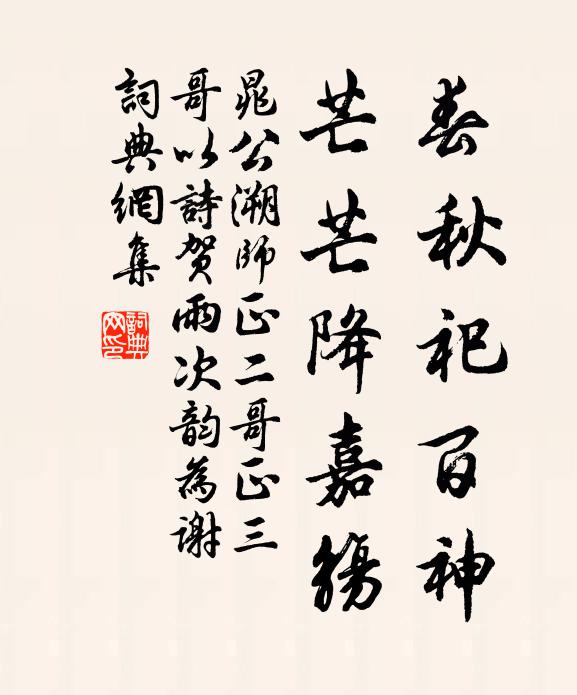 春秋祀百神
芒芒降嘉觴
晁公溯師正二哥正三
哥以詩贺雨次韵為谢
詞典網集
詞典網印